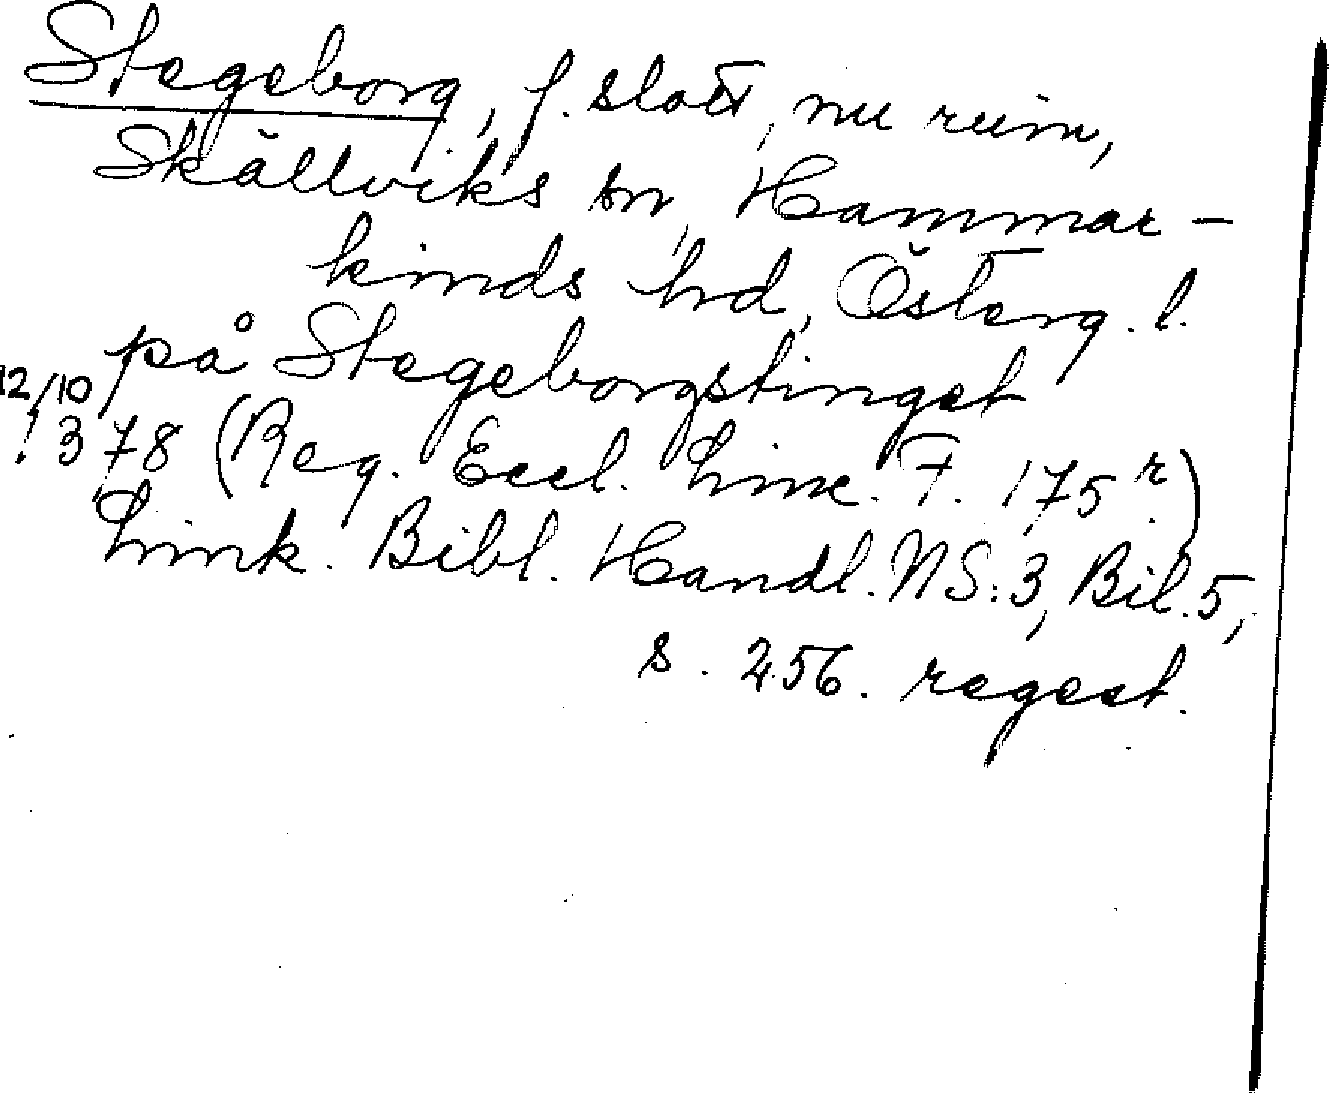 Stegeborg, f. slott, nu ruin,
Skällviks sn, Hammar-
kinds hd, Österg. l.
på Stegeborgstinget
12/10
1378 (Reg. Eccl. Linc. F. 175 r.)
Link. Bibl. Handl. NS:3, Bil. 5,
s. 256. regest.